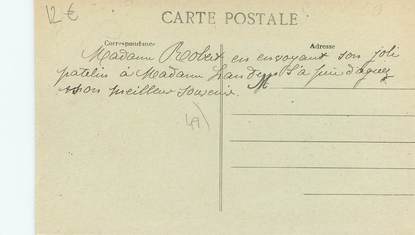 12 €
CARTE POSTALE
Correspondance
Adresse
Madame Robert en envoyant son joli
patelin à Madame prie d'agréer
son meilleur souvenir.
M
49